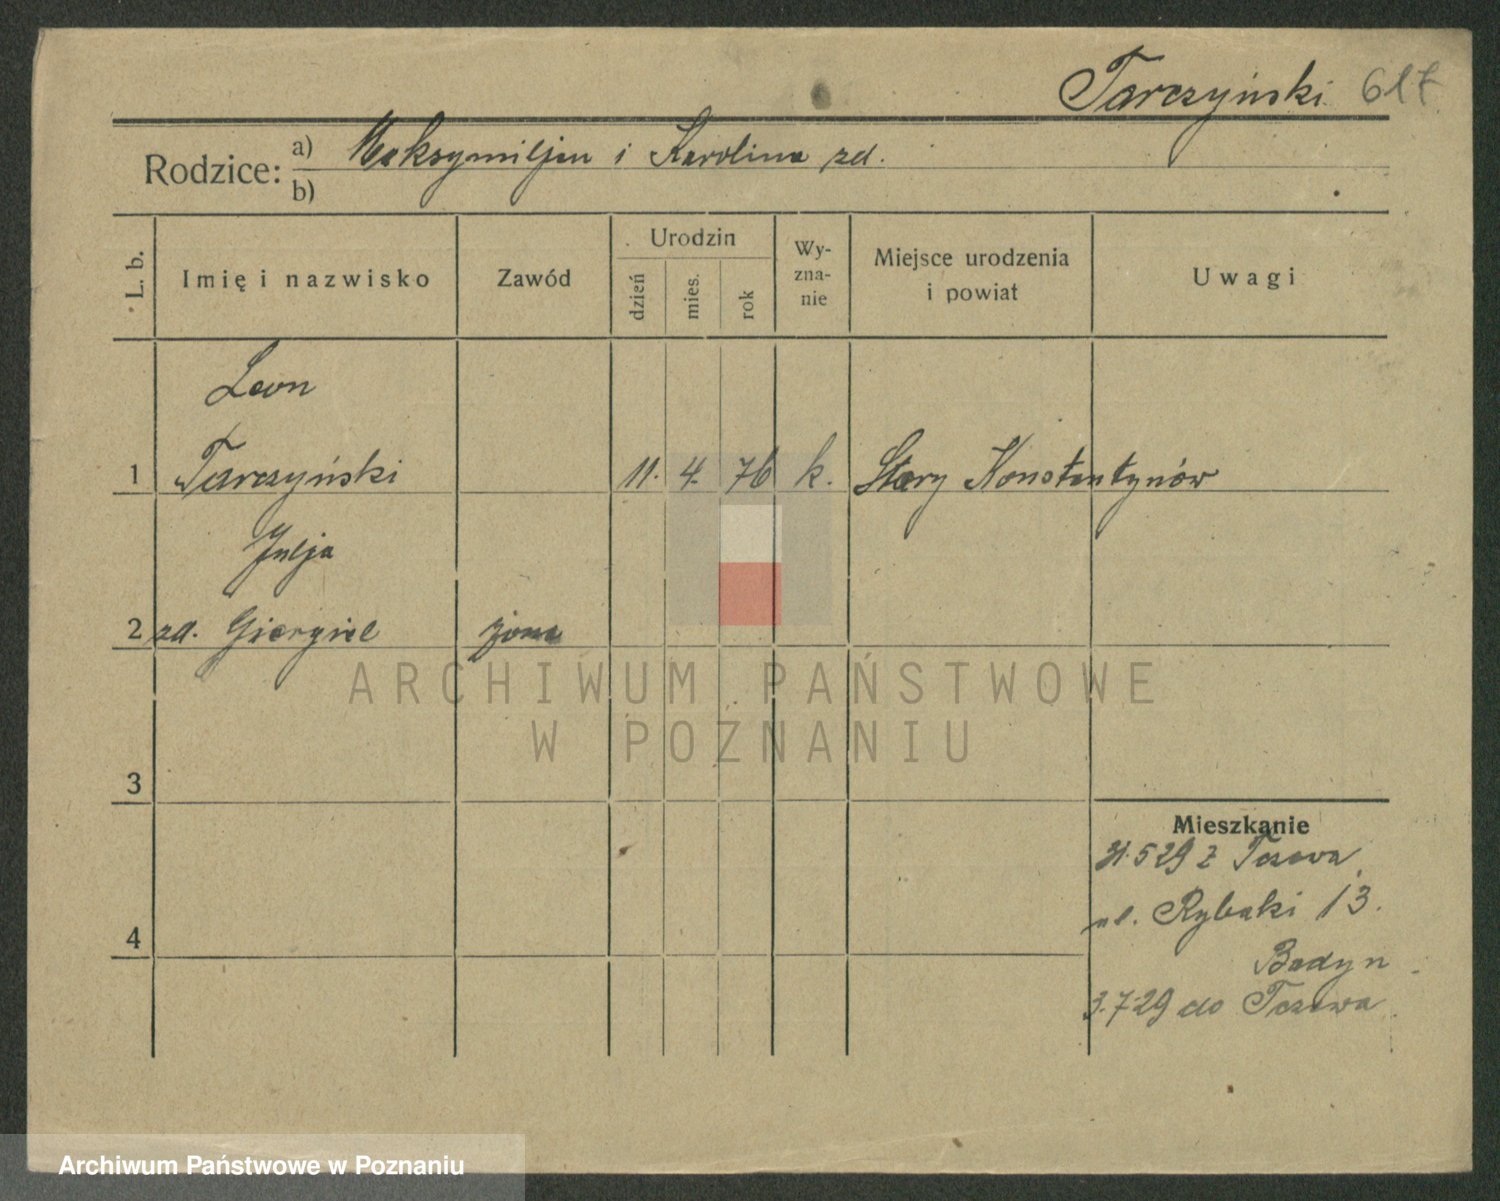 Tarczyński 617
Rodzice: a) Maksymiljan i Karolina zd.
b)
L. b.
Imię i nazwisko
Zawód
Urodzin
dzień
mies.
rok
Wy-
zna-
nie
Miejsce urodzenia
i powiat
Uwagi
Leon
1 Tarczyński 11. 4. 76 k. Stary Konstantynów
Julja
2 zd. Giergiel żona
3
4
Mieszkanie
31.5 29 z Tczewa
ul. Rybaki 13.
Badyn
3.7.29 do Tczewa
ARCHIWUM PAŃSTWOWE
W POZNANIU
Archiwum Państwowe w Poznaniu